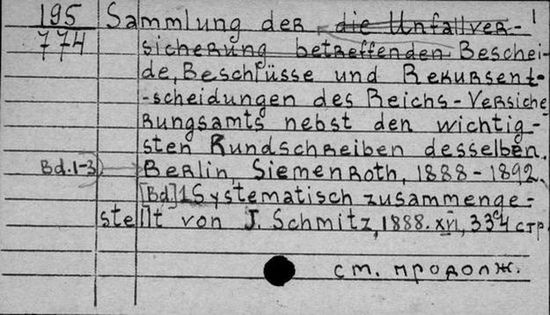 195 Sammlung der die Unfallver- 1
774 sicherung betreffenden Beschei-
de, Beschlüsse und Rekursent-
-scheidungen des Reichs-Versiche
rungsamts nebst den wichtig-
sten Rundschreiben desselben.
Bd. 1-3 Berlin, Siemenroth, 1888-1892.
[Bd] 1 Systematisch zusammenge-
stellt von J. Schmitz, 1888. XVI, 334 стр.
см. продолж.